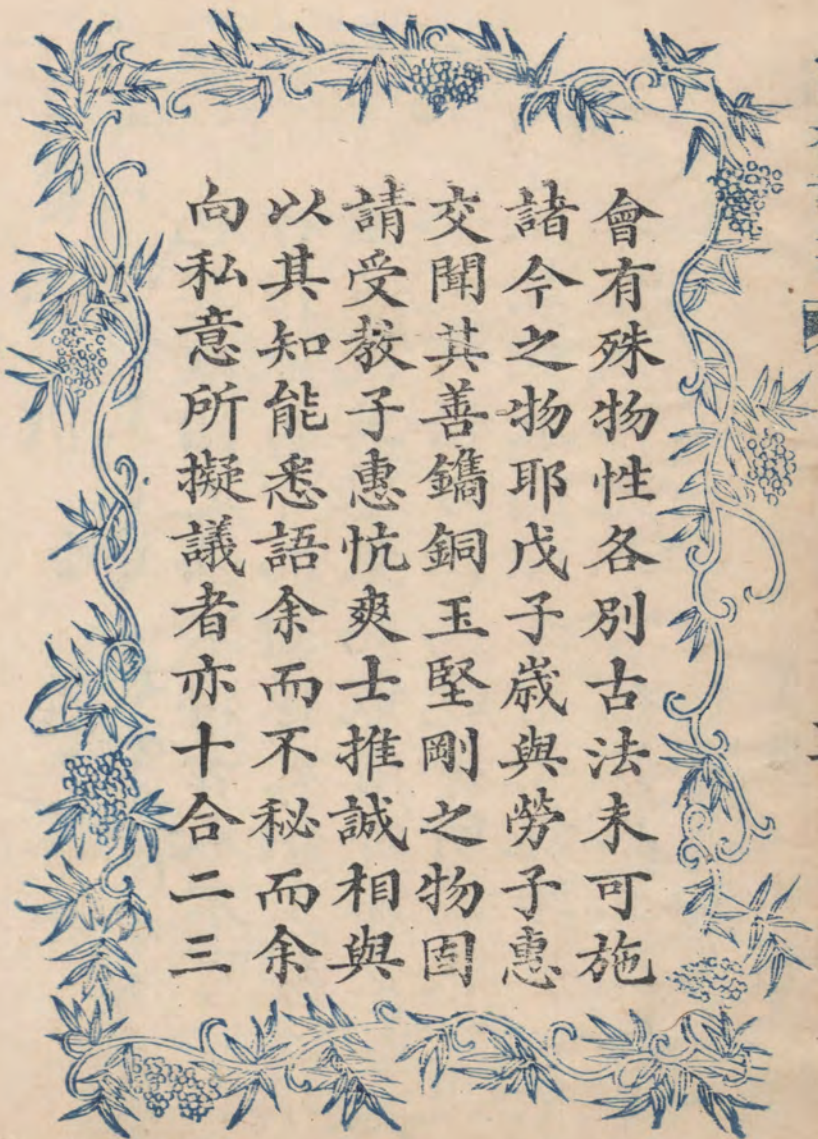 會有殊物性各別古法未可施
諸今之物耶戊子歲與勞子惠
交聞其善鐫銅玉堅剛之物固
請受教子惠忼爽士推誠相與
以其知能悉語余而不秘而余
向私意所擬議者亦十合二三